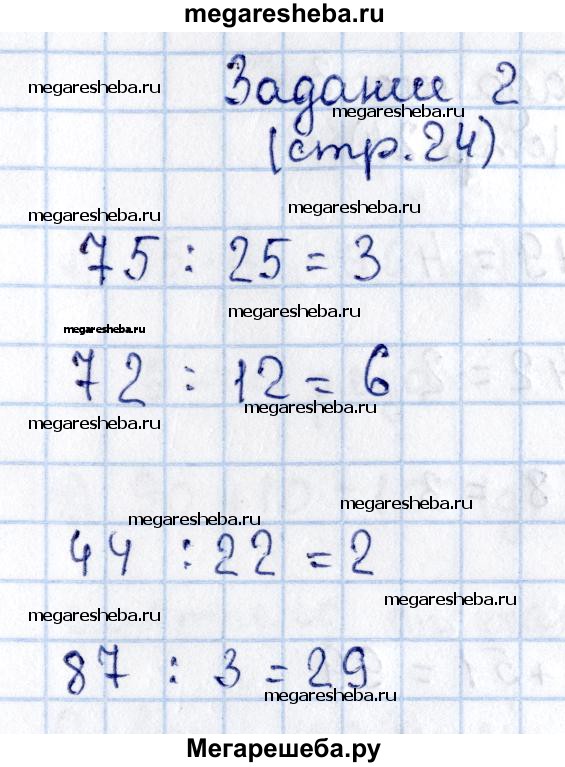 megaresheba.ru
Задание 2
megaresheba.ru
megaresheba.ru
(стр. 24)
megaresheba.ru
megaresheba.ru
75 : 25 = 3
megaresheba.ru
megaresheba.ru
72 : 12 = 6
megaresheba.ru
megaresheba.ru
megaresheba.ru
megaresheba.ru
44 : 22 = 2
megaresheba.ru
megaresheba.ru
87 : 3 = 29
megaresheba.ru
Мегарешеба.ру